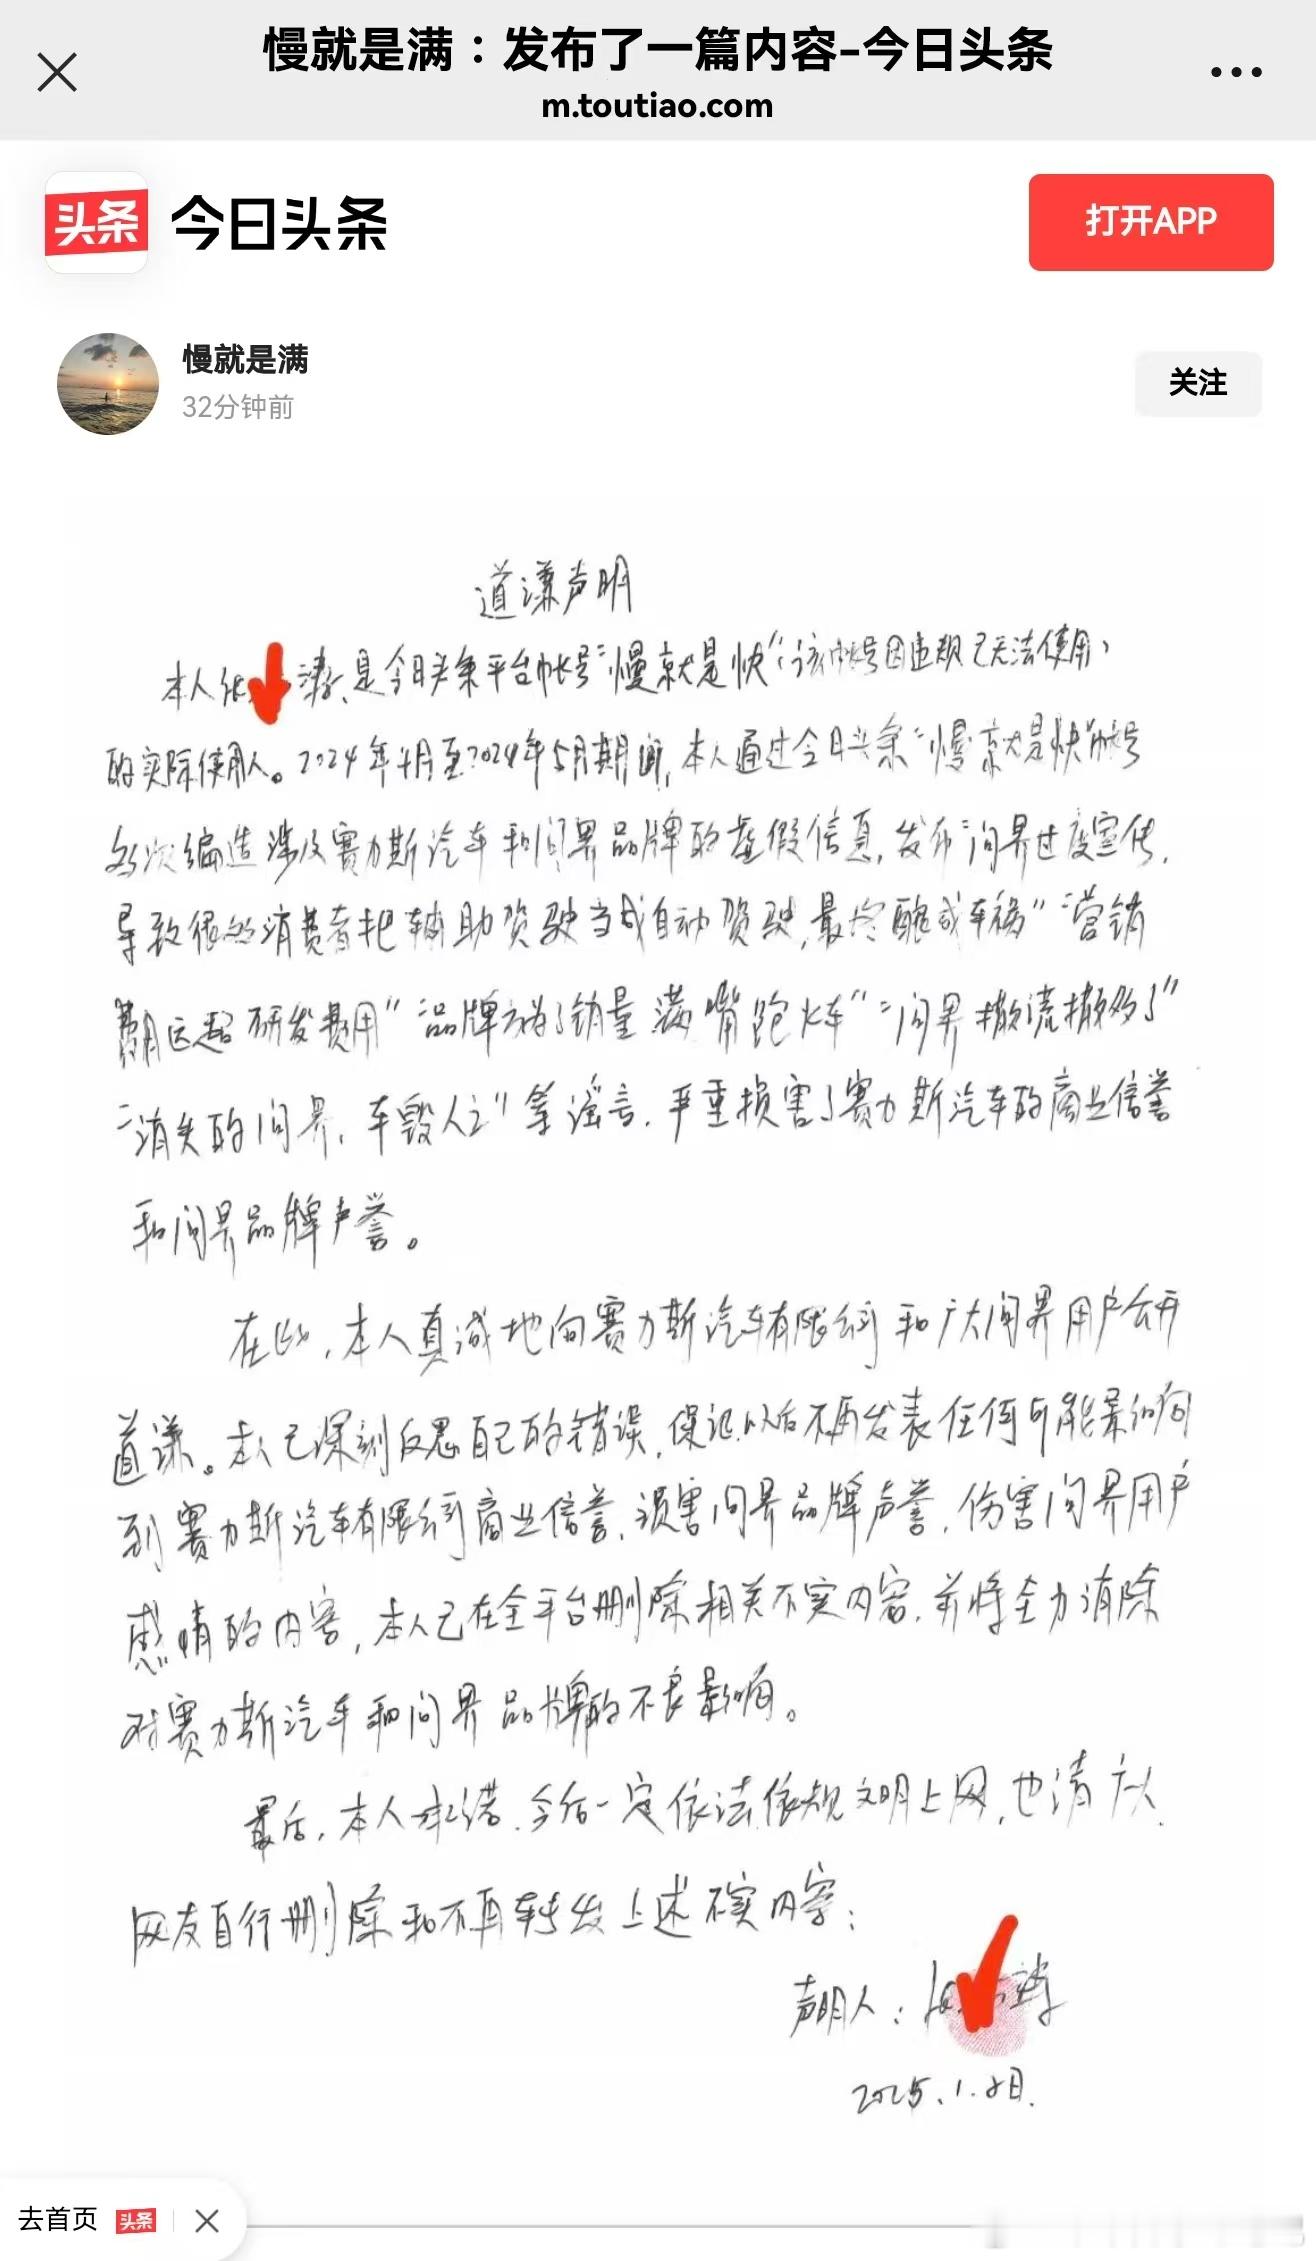 慢就是满：发布了一篇内容-今日头条
m.toutiao.com
头条 今日头条
打开APP
慢就是满
32分钟前
关注
道谦声明
本人 是今日头条平台帐号“慢就是快”(该帐号因违规已无法使用)
的实际使用人。2024年4月至2024年5月期间，本人通过今日头条“慢就是快”帐号
多次编造涉及赛力斯汽车和问界品牌的虚假信息，发布“问界过度宣传，
导致很多消费者把辅助驾驶当成自动驾驶，最终酿成车祸”“营销
费用远超研发费用”“品牌方为了销量满嘴跑火车”“问界撤流撤多了”
“消失的问界，车毁人亡”等谣言，严重损害了赛力斯汽车的商业信誉
和问界品牌声誉。
在此，本人真诚地向赛力斯汽车有限公司和广大问界用户公开
道谦。本人已深刻反思自己的错误，保证以后不再发表任何可能影响
到赛力斯汽车有限公司商业信誉、损害问界品牌声誉，伤害问界用户
感情的内容，本人已在全平台删除相关不实内容，并将全力消除
对赛力斯汽车和问界品牌的不良影响。
最后，本人承诺，今后一定依法依规文明上网，也请广大
网友自行删除和不再转发上述不实内容；
声明人：
2025.1.8日.
去首页 头条